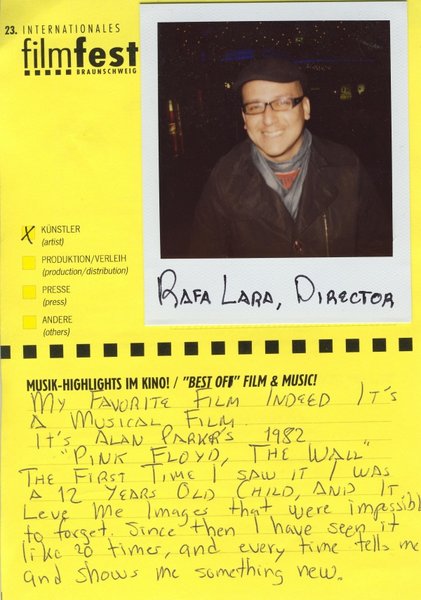 23. INTERNATIONALES
filmfest
BRAUNSCHWEIG
KÜNSTLER
(artist)
PRODUKTION/VERLEIH
(production/distribution)
PRESSE
(press)
ANDERE
(others)
RAFA LARA, DIRECTOR
MUSIK-HIGHLIGHTS IM KINO! / "BEST OFF" FILM & MUSIC!
MY FAVORITE FILM INDEED IT'S
A MUSICAL FILM.
IT'S ALAN PARKER'S 1982
"PINK FLOYD, THE WALL"
THE FIRST TIME I SAW IT I WAS
A 12 YEARS OLD CHILD, AND IT
LEVE ME IMAGES that were impossibl
to forget. Since then I have seen it
like 20 times, and every time tells me
and shows me something new.